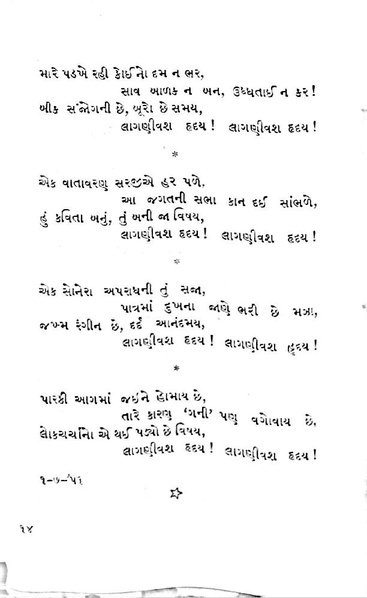 મારે પડખે રહી કોઈનો દમ ન ભર,
સાવ બાળક ન બન, ઉધ્ધતાઈ ન કર!
બીક સંજોગની છે, બૂરો છે સમય,
લાગણીવશ હૃદય! લાગણીવશ હૃદય!
*
એક વાતાવરણ સરજીએ હર પળે.
આ જગતની સભા કાન દઈ સાંભળે,
હું કવિતા બનું, તું બની જા વિષય,
લાગણીવશ હૃદય! લાગણીવશ હૃદય!
*
એક સોનેરા અપરાધની તું સજા,
પાત્રમાં દુખના જાણે ભરી છે મઝા,
જખ્મ રંગીન છે, દર્દ આનંદમય,
લાગણીવશ હૃદય! લાગણીવશ હૃદય!
*
પારકી આગમાં જઈને હોમાય છે,
તારે કારણ ‘ગની’ પણ વગોવાય છે,
લોકચર્ચાનો એ થઈ પડ્યો છે વિષય,
લાગણીવશ હૃદય! લાગણીવશ હૃદય!
૧-૭-’૫૧
૧૪